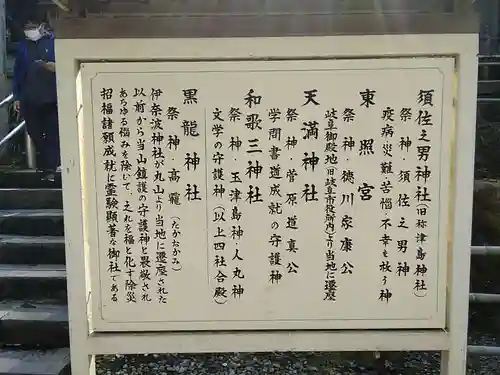 須佐之男神社(旧称津島神社)
祭神・須佐之男神
疫病災難・苦悩・不幸を救う神
東照宮
祭神・徳川家康公
岐阜御殿地旧岐阜市役所内より当地に遷座
天満神社
祭神・菅原道真公
学問書道成就の守護神
和歌三神社
祭神・玉津島神・人丸神
文学の守護神(以上四社合殿)
黒龍神社
祭神・高龗(たかおかみ)
伊奈波神社が丸山より当地に遷座された
以前から当山鎮護の守護神と畏敬され
あらゆる悩みを除いて、これを福と化す除災
招福諸願成就に霊験顕著な御社である